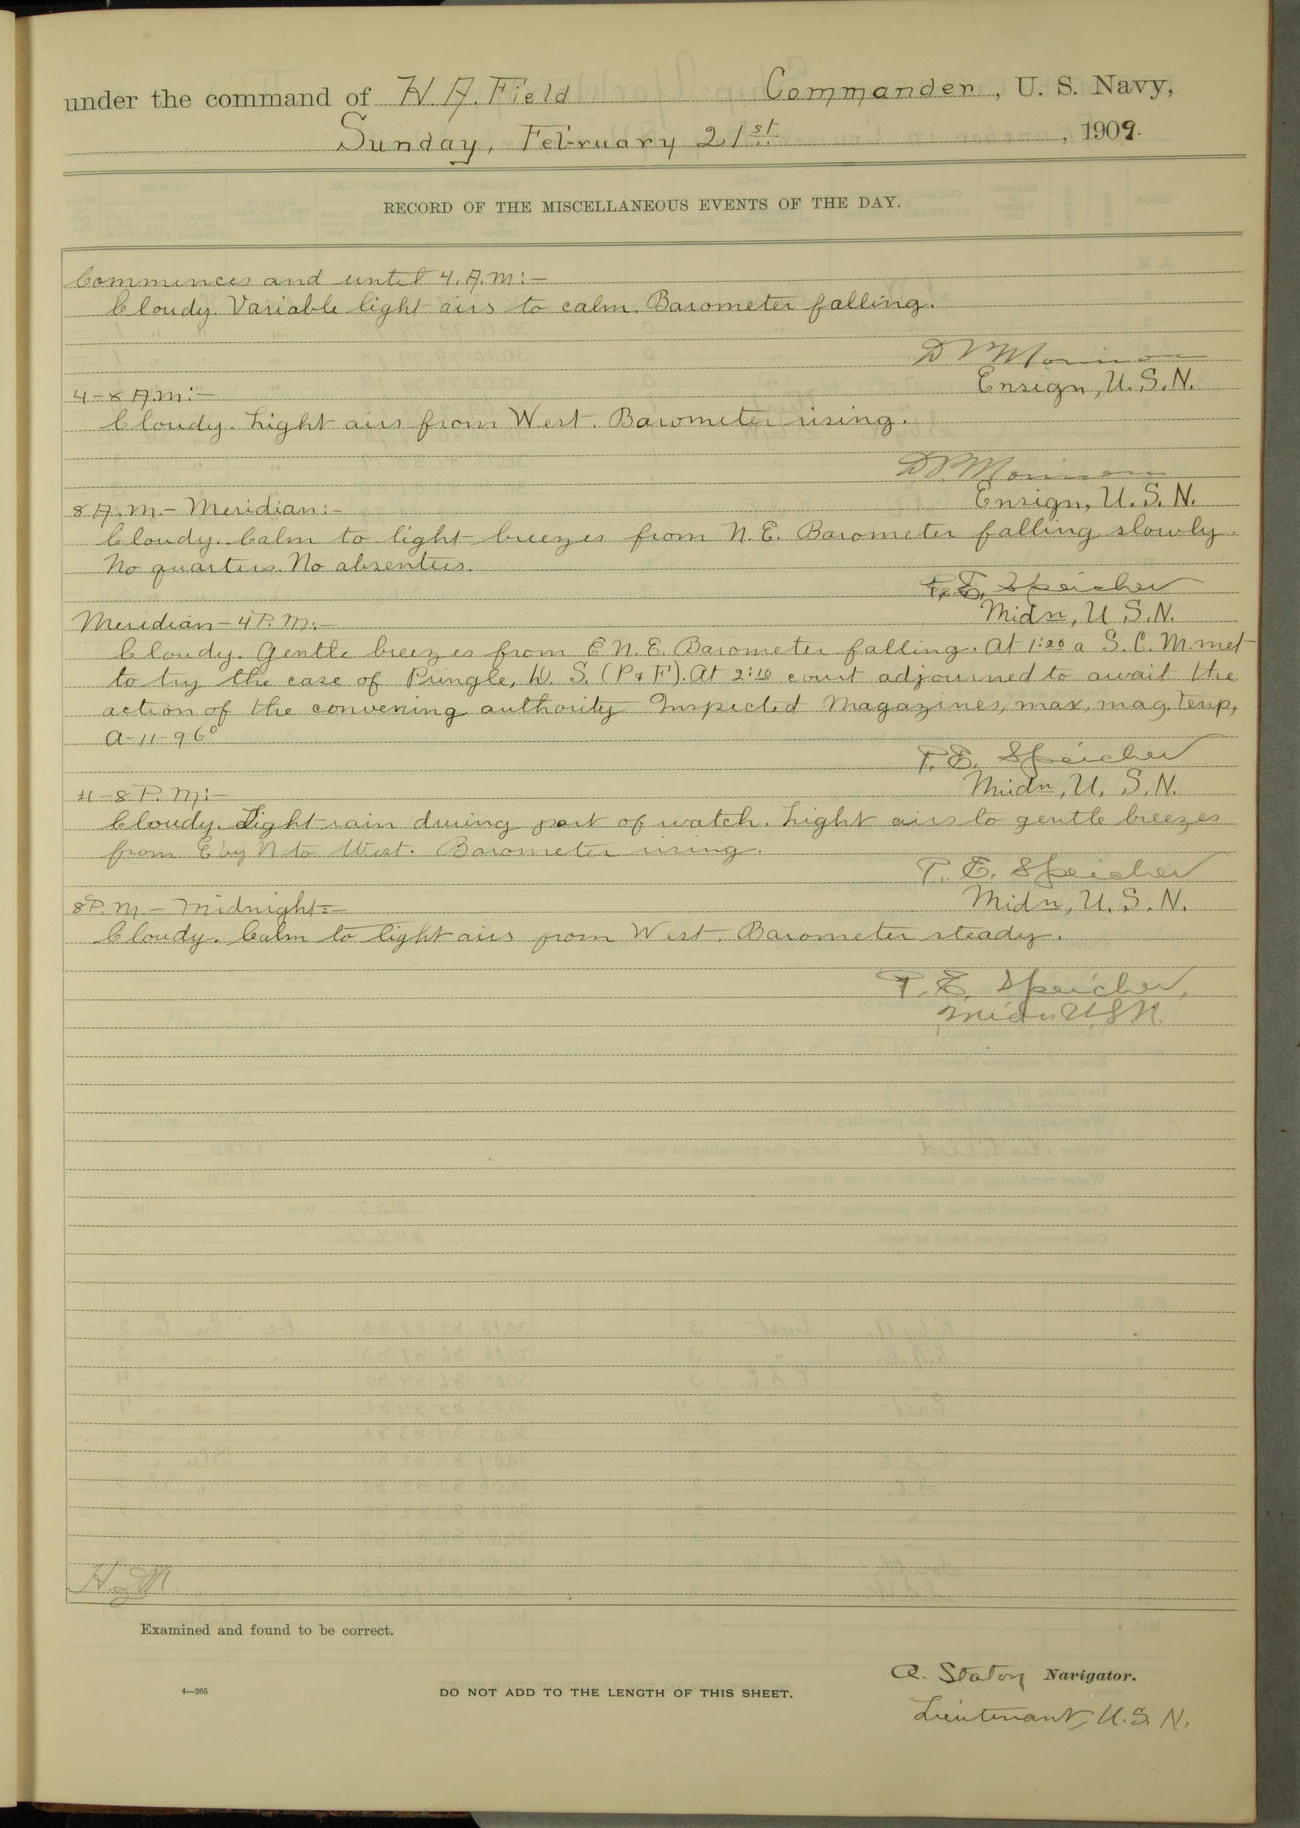 under the command of H. A. Field Commander, U. S. Navy,
Sunday, February 21st, 1909.
RECORD OF THE MISCELLANEOUS EVENTS OF THE DAY.
Commences and until 4. A.M:-
Cloudy. Variable light airs to calm. Barometer falling.
Ensign, U.S.N.
4-8 A.M:-
Cloudy. Light airs from West. Barometer rising.
Ensign, U.S.N.
8 A.M.- Meridian:-
Cloudy. Calm to light breezes from N.E. Barometer falling slowly.
No quarters. No absentees.
P. E. Speicher
Midn, U.S.N.
Meridian-4 P.M:-
Cloudy. Gentle breezes from E.N.E. Barometer falling. At 1:20 a S.C.M. met
to try the case of Pringle, W. S. (P & F). At 2:10 court adjourned to await the
action of the convening authority Inspected Magazines, max, mag. temp,
A-11-96°
P. E. Speicher
Midn, U.S.N.
4-8 P.M:-
Cloudy. Light rain during part of watch. Light airs to gentle breezes
from E by N to West. Barometer rising.
P. E. Speicher
Midn, U.S.N.
8 P.M- Midnight:-
Cloudy. Calm to light airs from West. Barometer steady.
P. E. Speicher,
Midn U S N.
Examined and found to be correct.
A. Staton Navigator.
4—265
DO NOT ADD TO THE LENGTH OF THIS SHEET.
Lieutenant, U.S.N.